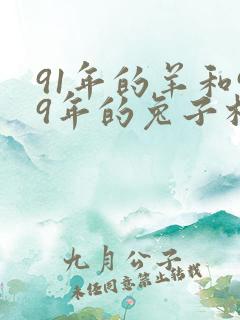 91年的羊和
9年的兔子
九月公子
未经同意禁止转载